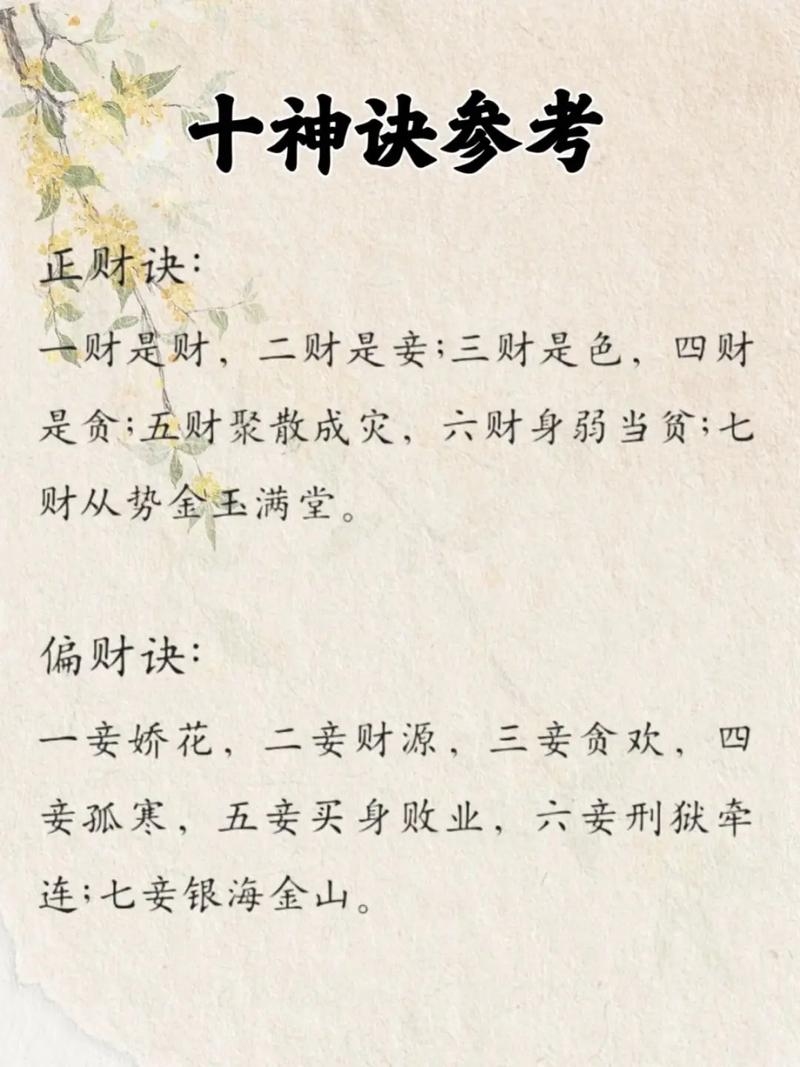 十神诀参考
正财诀：
一财是财，二财是妾；三财是色，四财
是贪；五财聚散成灾，六财身弱当贫；七
财从势金玉满堂。
偏财诀：
一妾娇花，二妾财源，三妾贪欢，四
妾孤寒，五妾买身败业，六妾刑狱牵
连；七妾银海金山。